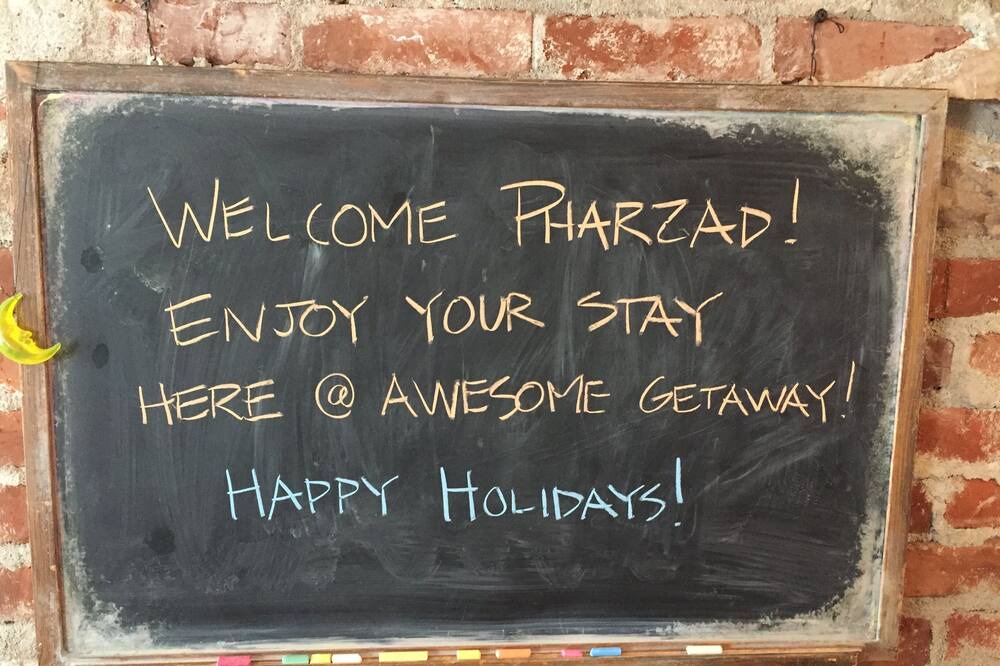 WELCOME PHARZAD!
ENJOY YOUR STAY
HERE @ AWESOME GETAWAY!
HAPPY HOLIDAYS!